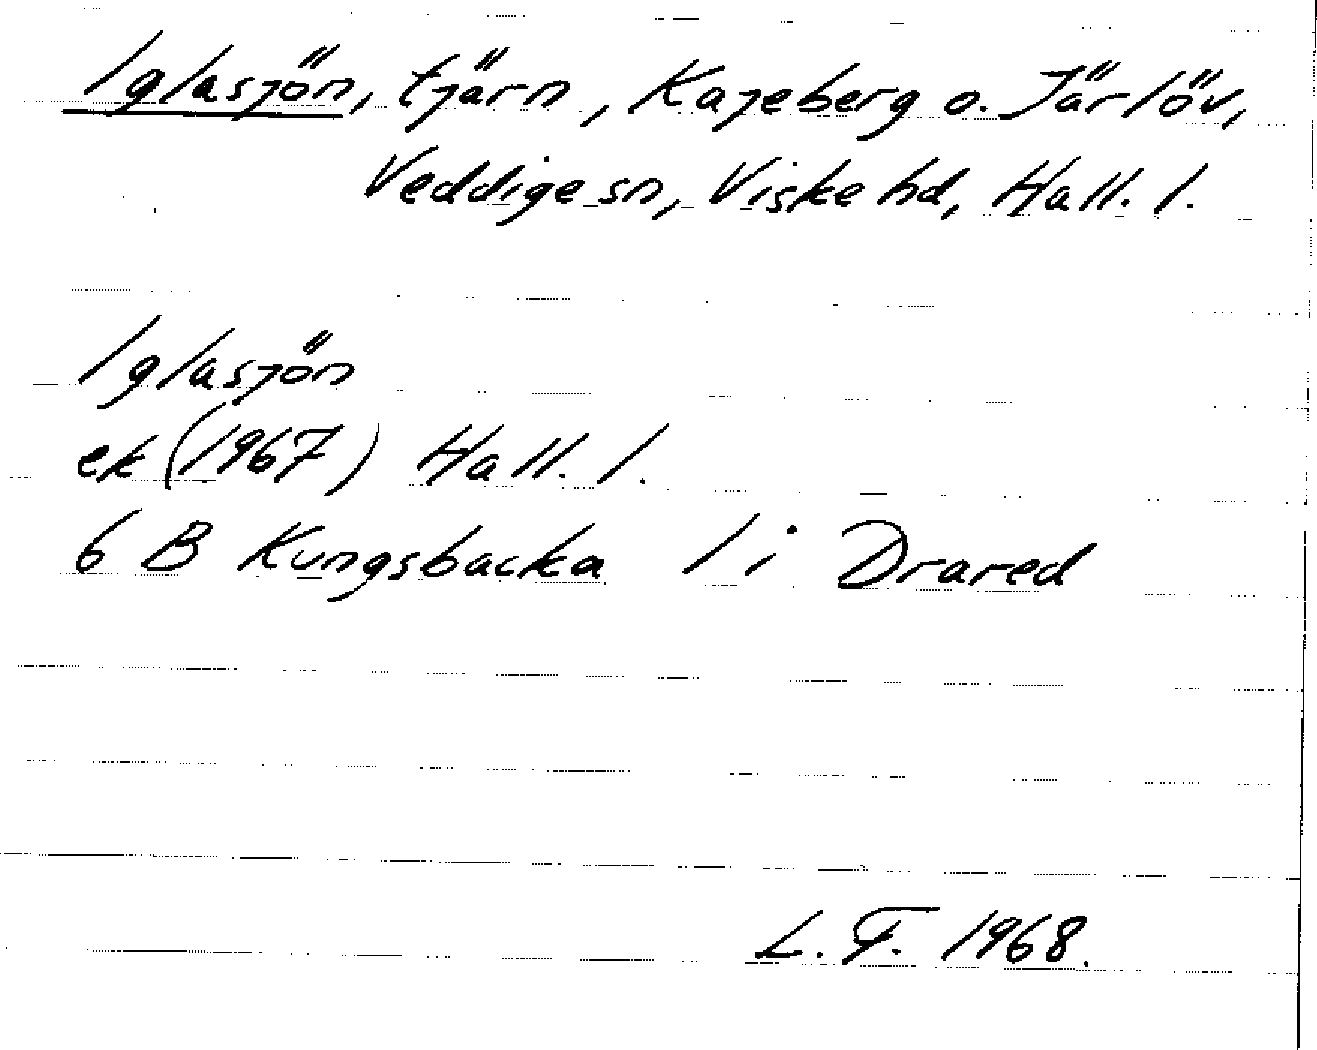 Iglasjön, tjärn, Kajeberg o. Järlöv,
Veddige sn, Viske hd, Hall. l.
Iglasjön
ek (1967) Hall. l.
6 B Kungsbacka 1 i Drared
L. F. 1968.